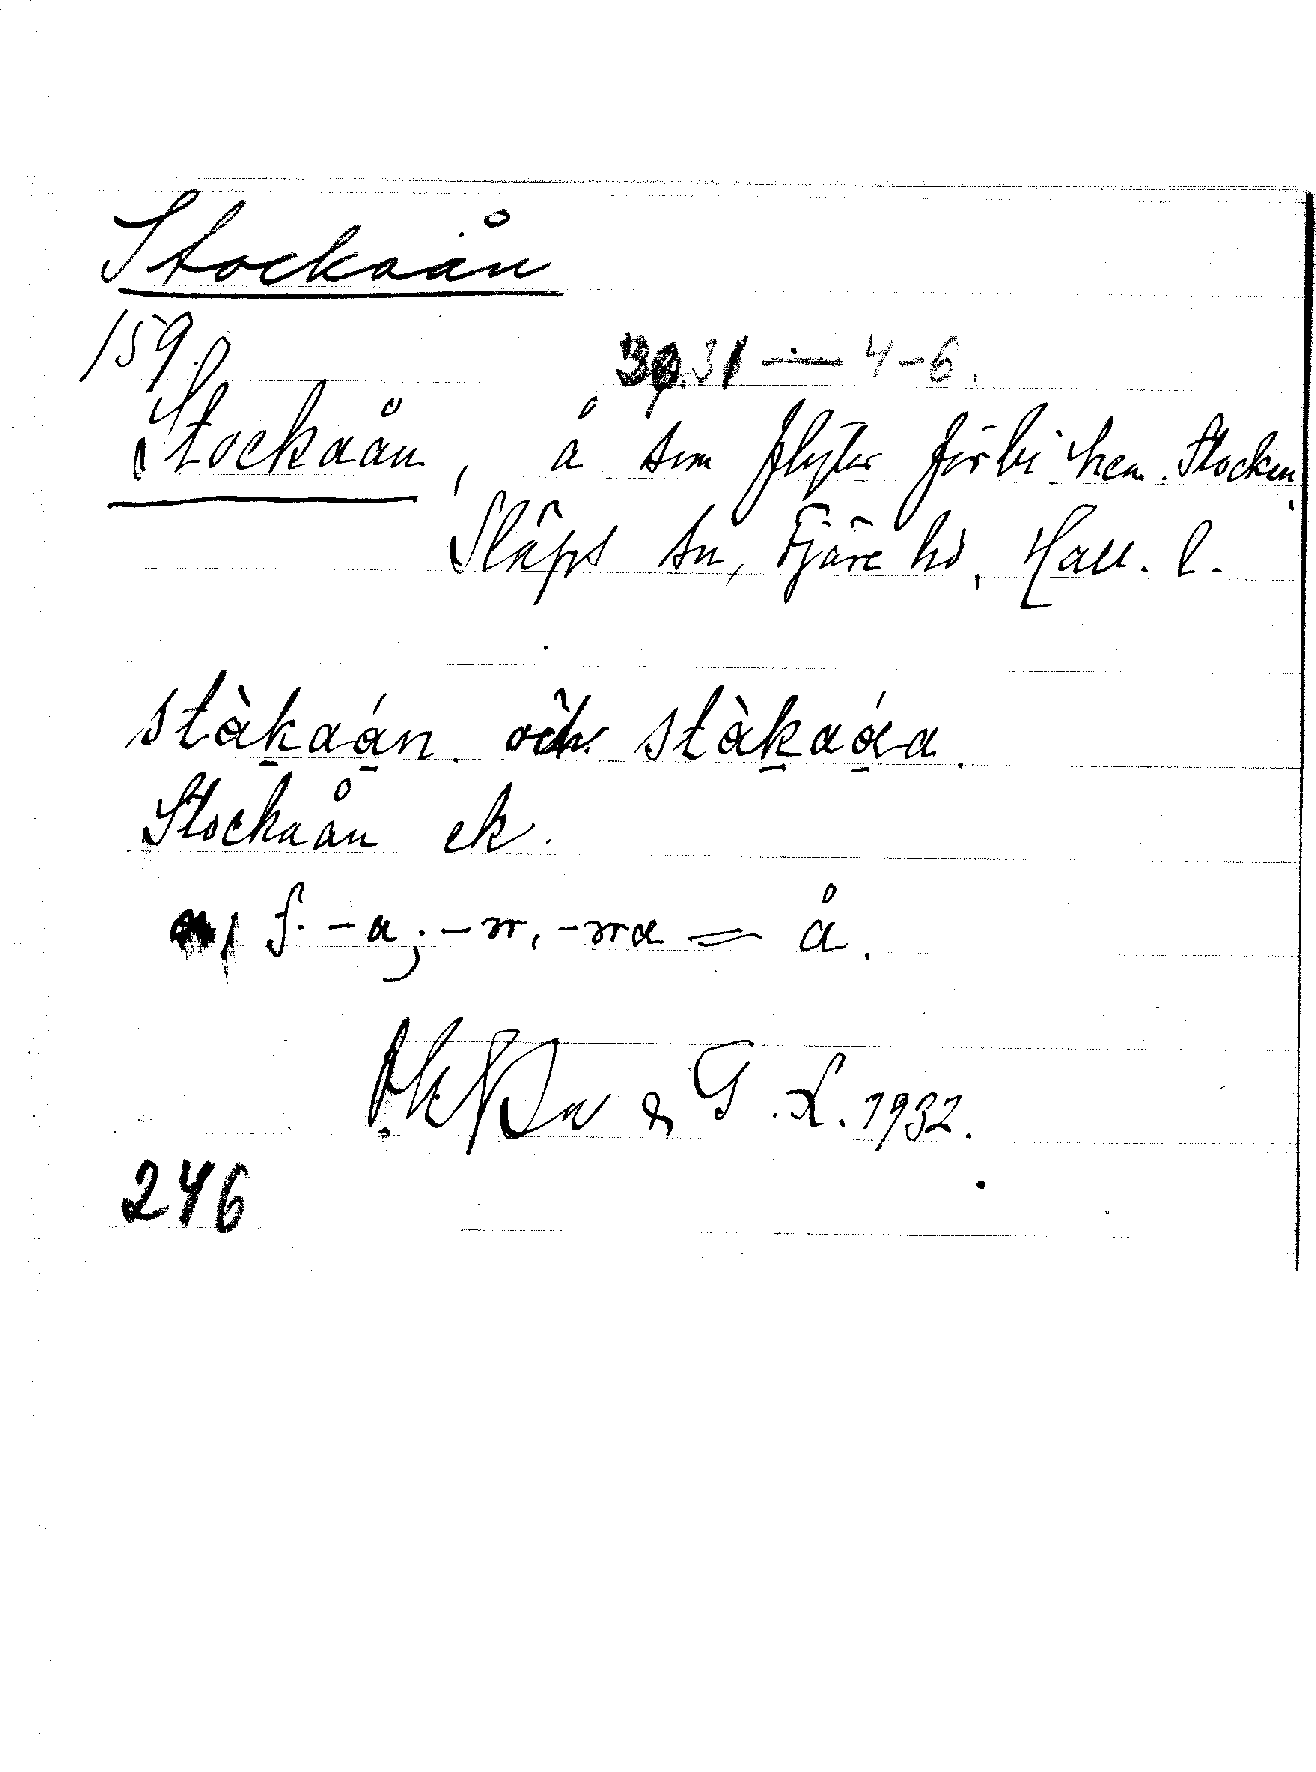 Stockaån
159.
31 — 4-6.
Stockaån, å som flyter förbi hem. Stocken,
Släps sn, Fjäre hd, Hall. l.
stàkaán. och stàkaáa.
Stockaån ek.
f. -a; -n, -na = å.
& G. L. 1932.
246